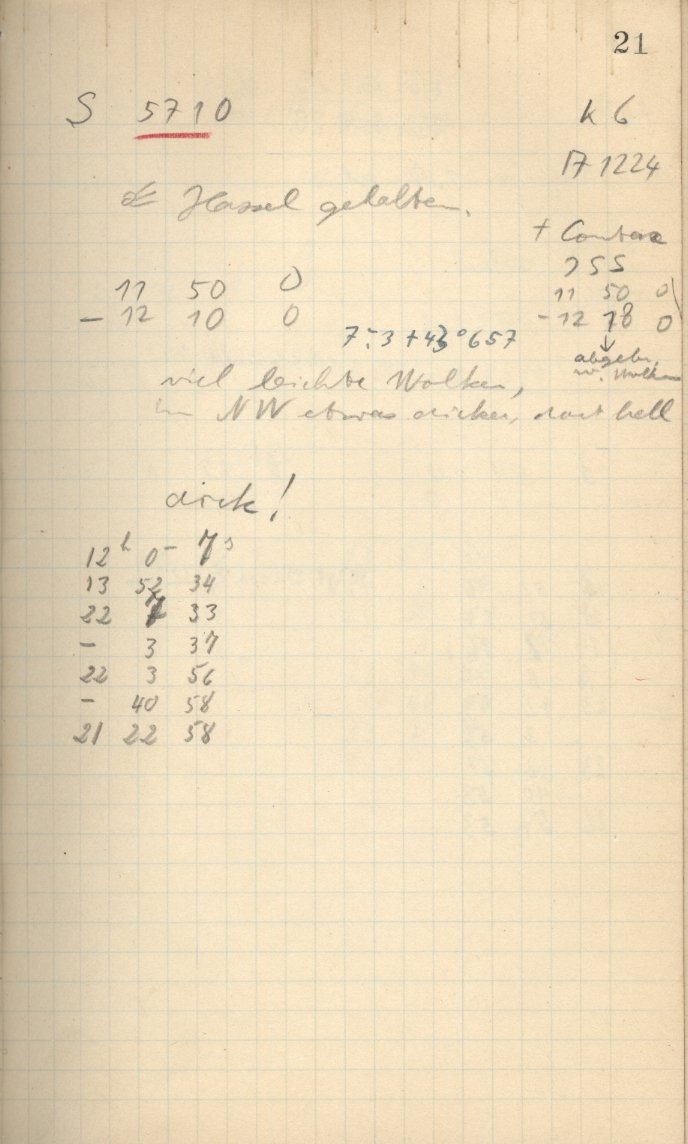 21
S 5710
K 6
17 1224
Hassel gehalten.
+ Contax
755
11 50 0
- 12 10 0
11 50 0
- 12 18 0
7 : 3 + 43° 657
abgebr.
w. Wolken
viel leichte Wolken,
im NW etwas dicker, dort hell
dick!
12h 0 - 7s
13 52 34
22 7 33
- 3 37
22 3 56
- 40 58
21 22 58